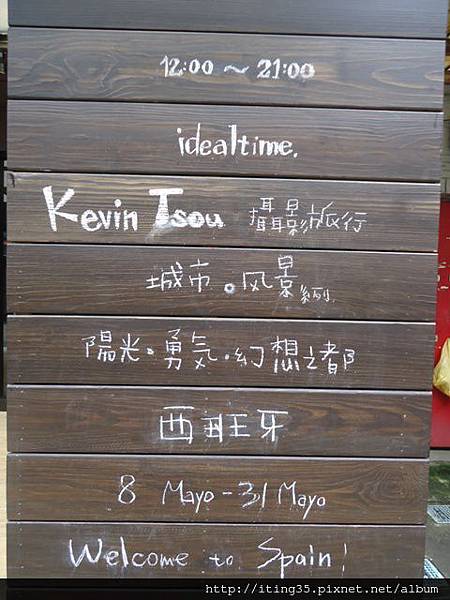 12:00 ~ 21:00
idealtime.
Kevin Tsou 攝影旅行
城市。风景系列
陽光·勇気·幻想之都
西班牙
8 Mayo - 31 Mayo
Welcome to Spain!
http://iting35.pixnet.net/album